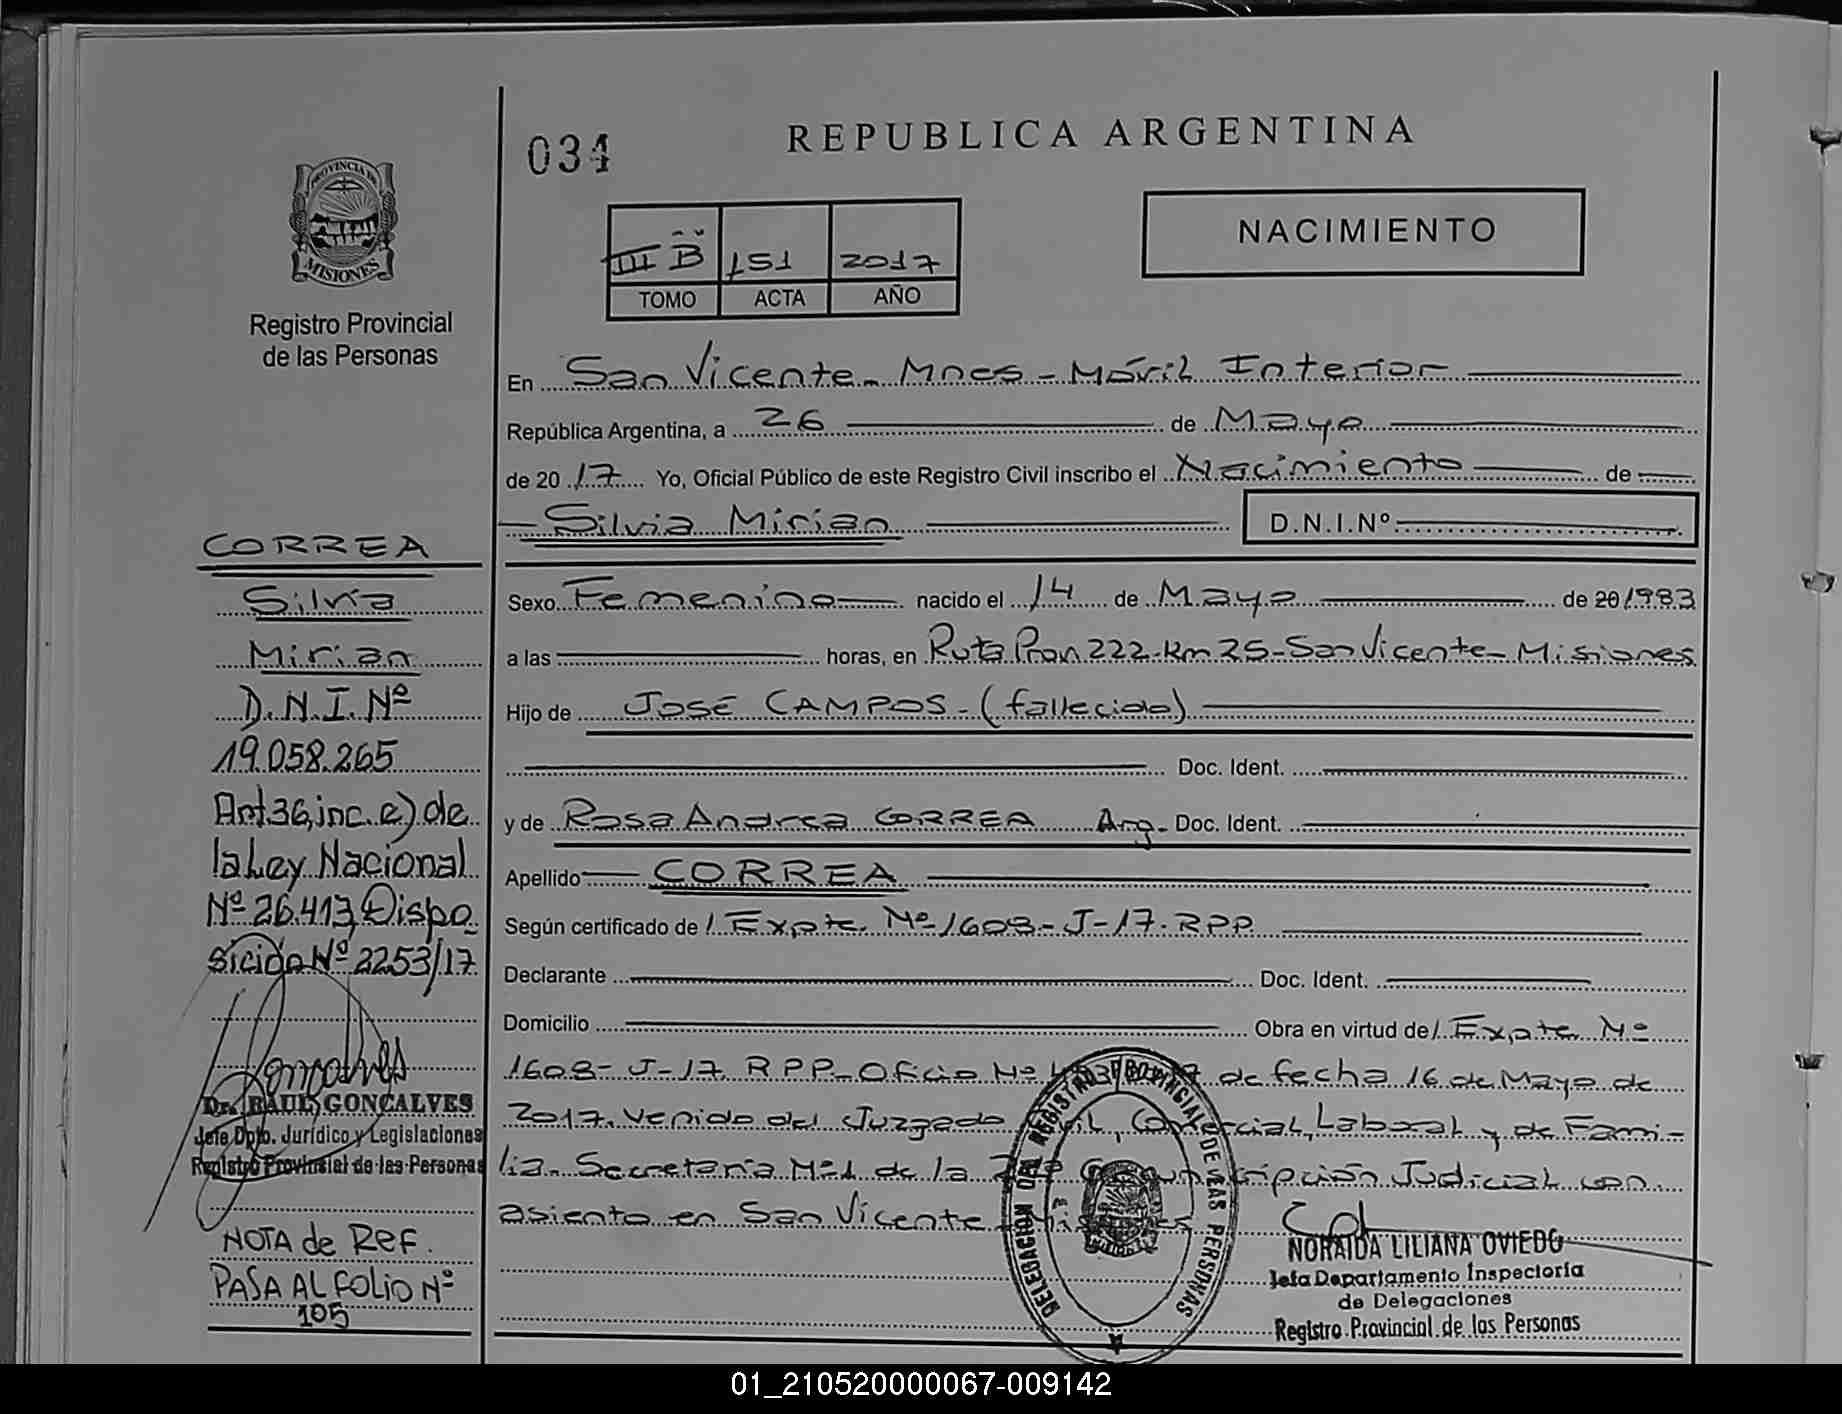 034
REPUBLICA ARGENTINA
PROVINCIA DE
MISIONES
Registro Provincial
de las Personas
NACIMIENTO
III B 151 2017
TOMO ACTA AÑO
En San Vicente - Mnes - Móvil Interior
República Argentina, a 26 de Mayo
de 2017 Yo, Oficial Público de este Registro Civil inscribo el Nacimiento de
Silvia Mirian D.N.I.Nº
Sexo Femenino nacido el 14 de Mayo de 20 1983
a las horas, en Ruta Prov. 222-Km 25-San Vicente-Misiones
Hijo de JOSÉ CAMPOS - (fallecido)
Doc. Ident.
y de Rosa Andrea CORREA Arg. Doc. Ident.
Apellido CORREA
Según certificado de / Expte. Nº 1608-J-17. RPP
Declarante Doc. Ident.
Domicilio Obra en virtud de / Expte. Nº
1608-J-17. RPP-Oficio Nº de fecha 16 de Mayo de
2017. venido del Juzgado Civil, Comercial, Laboral y de Fami-
lia. Secretaría Nº1 de la Circunscripción Judicial con
asiento en San Vicente - Misiones
CORREA
Silvia
Mirian
D.N.I.Nº
19.058.265
Art.36,inc.e) de
la Ley Nacional
Nº 26.413, Dispo
sición Nº 2253/17
Gonçalves
Dr. RAUL GONCALVES
Jefe Dpto. Jurídico y Legislaciones
Registro Provincial de las Personas
NOTA de REF.
PASA AL FOLIO Nº
105
DELEGACION DEL REGISTRO PROVINCIAL DE LAS PERSONAS
NORAIDA LILIANA OVIEDO
Jefa Departamento Inspectoría
de Delegaciones
Registro Provincial de las Personas
01_210520000067-009142